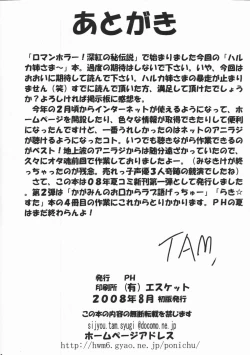 あとがき
「ロマンホラー！深紅の秘伝説」で始まりました今回の「ハル
カ姉さま～」本。過度の期待はしないで下さい。いや、今回は
おおいに期待して読んで下さい。ハルカ姉さまの暴走が止まり
ません（笑）すでに読んで頂いた方、満足して頂けたでしょう
か？よろしければ掲示板に感想を。
今年の2月頃からインターネットが使えるようになって、ホ
ームページを開設したり、色々な情報が取得できたりして便利
になったんですけど、一番うれしかったのはネットのアニラジ
が聴けるようになったコト。いつでも聴きながら作業できるの
がベスト！地上波のアニラジからは随分遠ざかっていたので、
久々にオタ魂前面で作業しておりましたよー。（みなきけが終
っちゃったのが残念。売れっ子声優３人奇跡の競演でしたね）
さて、この本は08年夏コミ新刊第一弾として発行しました
。第２弾は「かがみんのお口からラブ語げっちゅー」「らき☆
すた」本の４冊目の作業にこれからとりかかります。ＰＨの夏
はまだ終わらんよ！
TAM
発行　PH
印刷所　(有)エスケット
2008年8月　初版発行
この本の内容の無断転載を禁じます
sijyou.tam.syugi@docomo.ne.jp
ホームページアドレス
http://hwm6.gyao.ne.jp/ponichu/